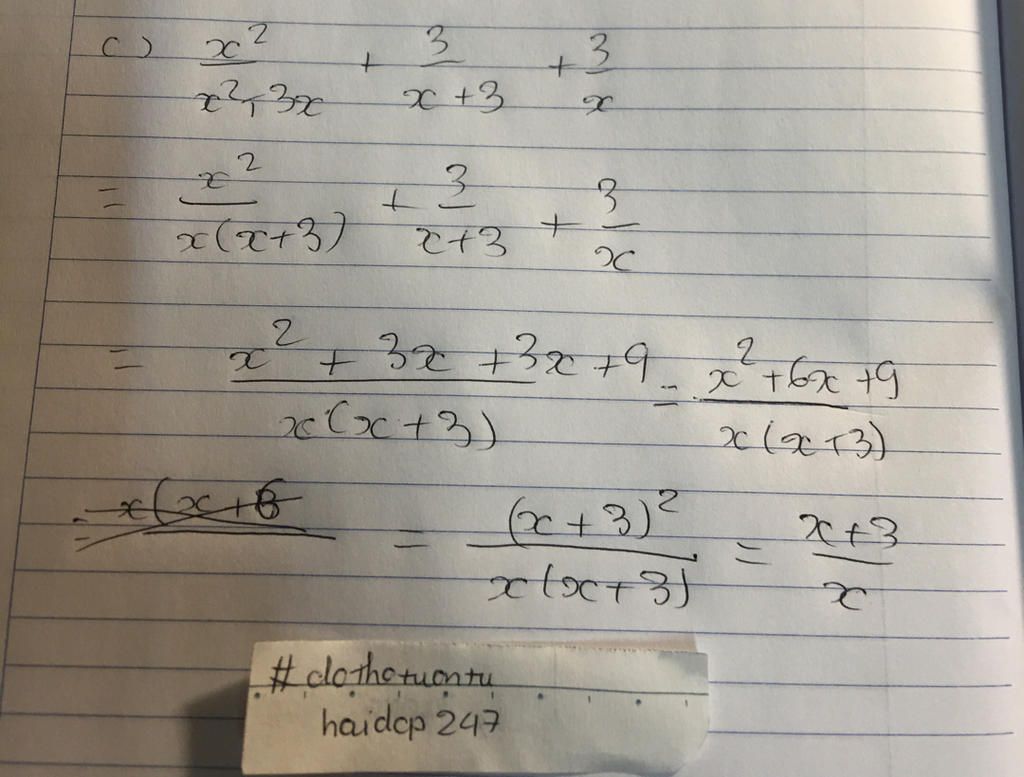 c) x²/(x²+3x) + 3/(x+3) + 3/x
= x²/(x(x+3)) + 3/(x+3) + 3/x
= (x² + 3x + 3x + 9)/(x(x+3)) = (x² + 6x + 9)/(x(x+3))
= x(x+6 = (x+3)²/(x(x+3)) = (x+3)/x
#clothotuontu
haidcp 247